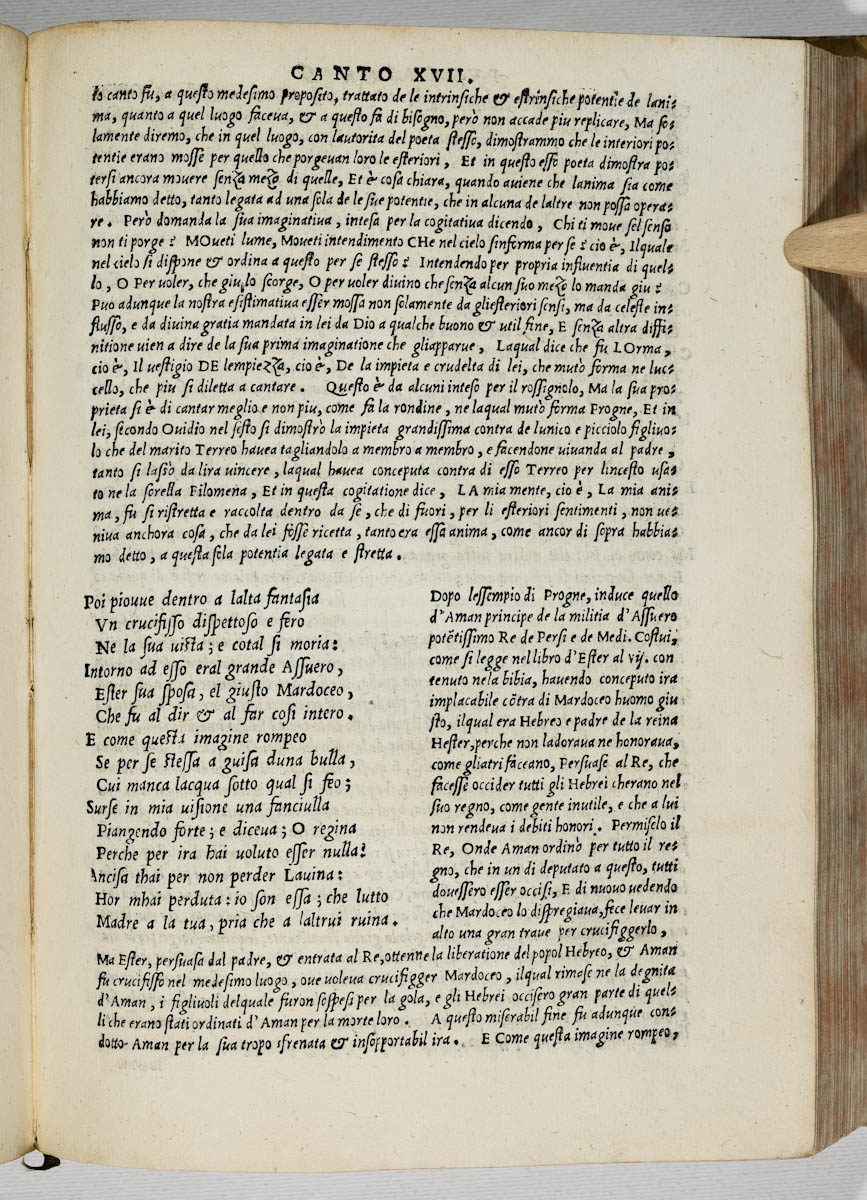 CANTO XVII.
to canto fu, a questo medesimo proposito, trattato de le intrinsiche & estrinsiche potentie de lani=
ma, quanto a quel luogo faceua, & a questo fa di bisogno, però non accade piu replicare, Ma so=
lamente diremo, che in quel luogo, con lautorita del poeta stesso, dimostrammo che le interiori po=
tentie erano mosse per quello che porgeuan loro le esteriori, Et in questo esso poeta dimostra po=
tersi ancora mouere senza mezo di quelle, Et è cosa chiara, quando auiene che lanima sia come
habbiamo detto, tanto legata ad una sola de le sue potentie, che in alcuna de laltre non possa opera=
re. Però domanda la sua imaginatiua, intesa per la cogitatiua dicendo, Chi ti moue sel senso
non ti porge? MOueti lume, Moueti intendimento CHe nel cielo sinforma per se? cio è, Ilquale
nel cielo si dispone & ordina a questo per se stesso? Intendendo per propria influentia di quel=
lo, O Per uoler, che giu lo scorge, O per uoler diuino che senza alcun suo mezo lo manda giu?
Puo adunque la nostra esistimatiua esser mossa non solamente da gliesteriori sensi, ma da celeste in=
flusso, e da diuina gratia mandata in lei da Dio a qualche buono & util fine, E senza altra diffi=
nitione uien a dire de la sua prima imaginatione che gliapparue, Laqual dice che fu LOrma,
cio è, Il uestigio DE lempiezza, cio è, De la impieta e crudelta di lei, che mutò forma ne luc=
cello, che piu si diletta a cantare. Questo è da alcuni inteso per il rossignolo, Ma la sua pro=
prieta si è di cantar meglio e non piu, come fa la rondine, ne laqual mutò forma Progne, Et in
lei, secondo Ouidio nel sesto si dimostrò la impieta grandissima contra de lunico e picciolo figliuo=
lo che del marito Terreo hauea tagliandolo a membro a membro, e facendone uiuanda al padre,
tanto si lasiò da lira uincere, laqual hauea conceputa contra di esso Terreo per lincesto usa=
to ne la sorella Filomena, Et in questa cogitatione dice, LA mia mente, cio è, La mia ani=
ma, fu si ristretta e raccolta dentro da se, che di fuori, per li esteriori sentimenti, non ue=
niua anchora cosa, che da lei fosse ricetta, tanto era essa anima, come ancor di sopra habbia=
mo detto, a questa sola potentia legata e stretta.
Poi piouue dentro a lalta fantasia
Vn crucifisso dispettoso e fero
Ne la sua uista; e cotal si moria:
Intorno ad esso eral grande Assuero,
Ester sua sposa, el giusto Mardoceo,
Che fu al dir & al far cosi intero.
E come questa imagine rompeo
Se per se stessa a guisa duna bulla,
Cui manca lacqua sotto qual si feo;
Surse in mia uisione una fanciulla
Piangendo forte; e diceua; O regina
Perche per ira hai uoluto esser nulla?
Ancisa thai per non perder Lauina:
Hor mhai perduta: io son essa; che lutto
Madre a la tua, pria che a laltrui ruina.
Dopo lessempio di Progne, induce quello
d'Aman principe de la militia d'Assuero
potẽtissimo Re de Persi e de Medi. Costui,
come si legge nel libro d'Ester al vij. con
tenuto nela bibia, hauendo conceputo ira
implacabile cõtra di Mardoceo huomo giu
sto, ilqual era Hebreo e padre de la reina
Hester, perche non ladoraua ne honoraua,
come gliatri faceano, Persuase al Re, che
facesse occider tutti gli Hebrei cherano nel
suo regno, come gente inutile, e che a lui
non rendeua i debiti honori. Permiselo il
Re, Onde Aman ordinò per tutto il re=
gno, che in un di deputato a questo, tutti
douessero esser occisi, E di nuouo uedendo
che Mardoceo lo dispregiaua, fece leuar in
alto una gran traue per crucifiggerlo,
Ma Ester, persuasa dal padre, & entrata al Re, ottenne la liberatione del popol Hebreo, & Aman
fu crucifisso nel medesimo luogo, oue uoleua crucifigger Mardoceo, ilqual rimase ne la degnita
d'Aman, i figliuoli delquale furon sospesi per la gola, e gli Hebrei occisero gran parte di quel=
li che erano stati ordinati d'Aman per la morte loro. A questo miserabil fine fu adunque con=
dotto Aman per la sua tropo sfrenata & insopportabil ira. E Come questa imagine rompeo,